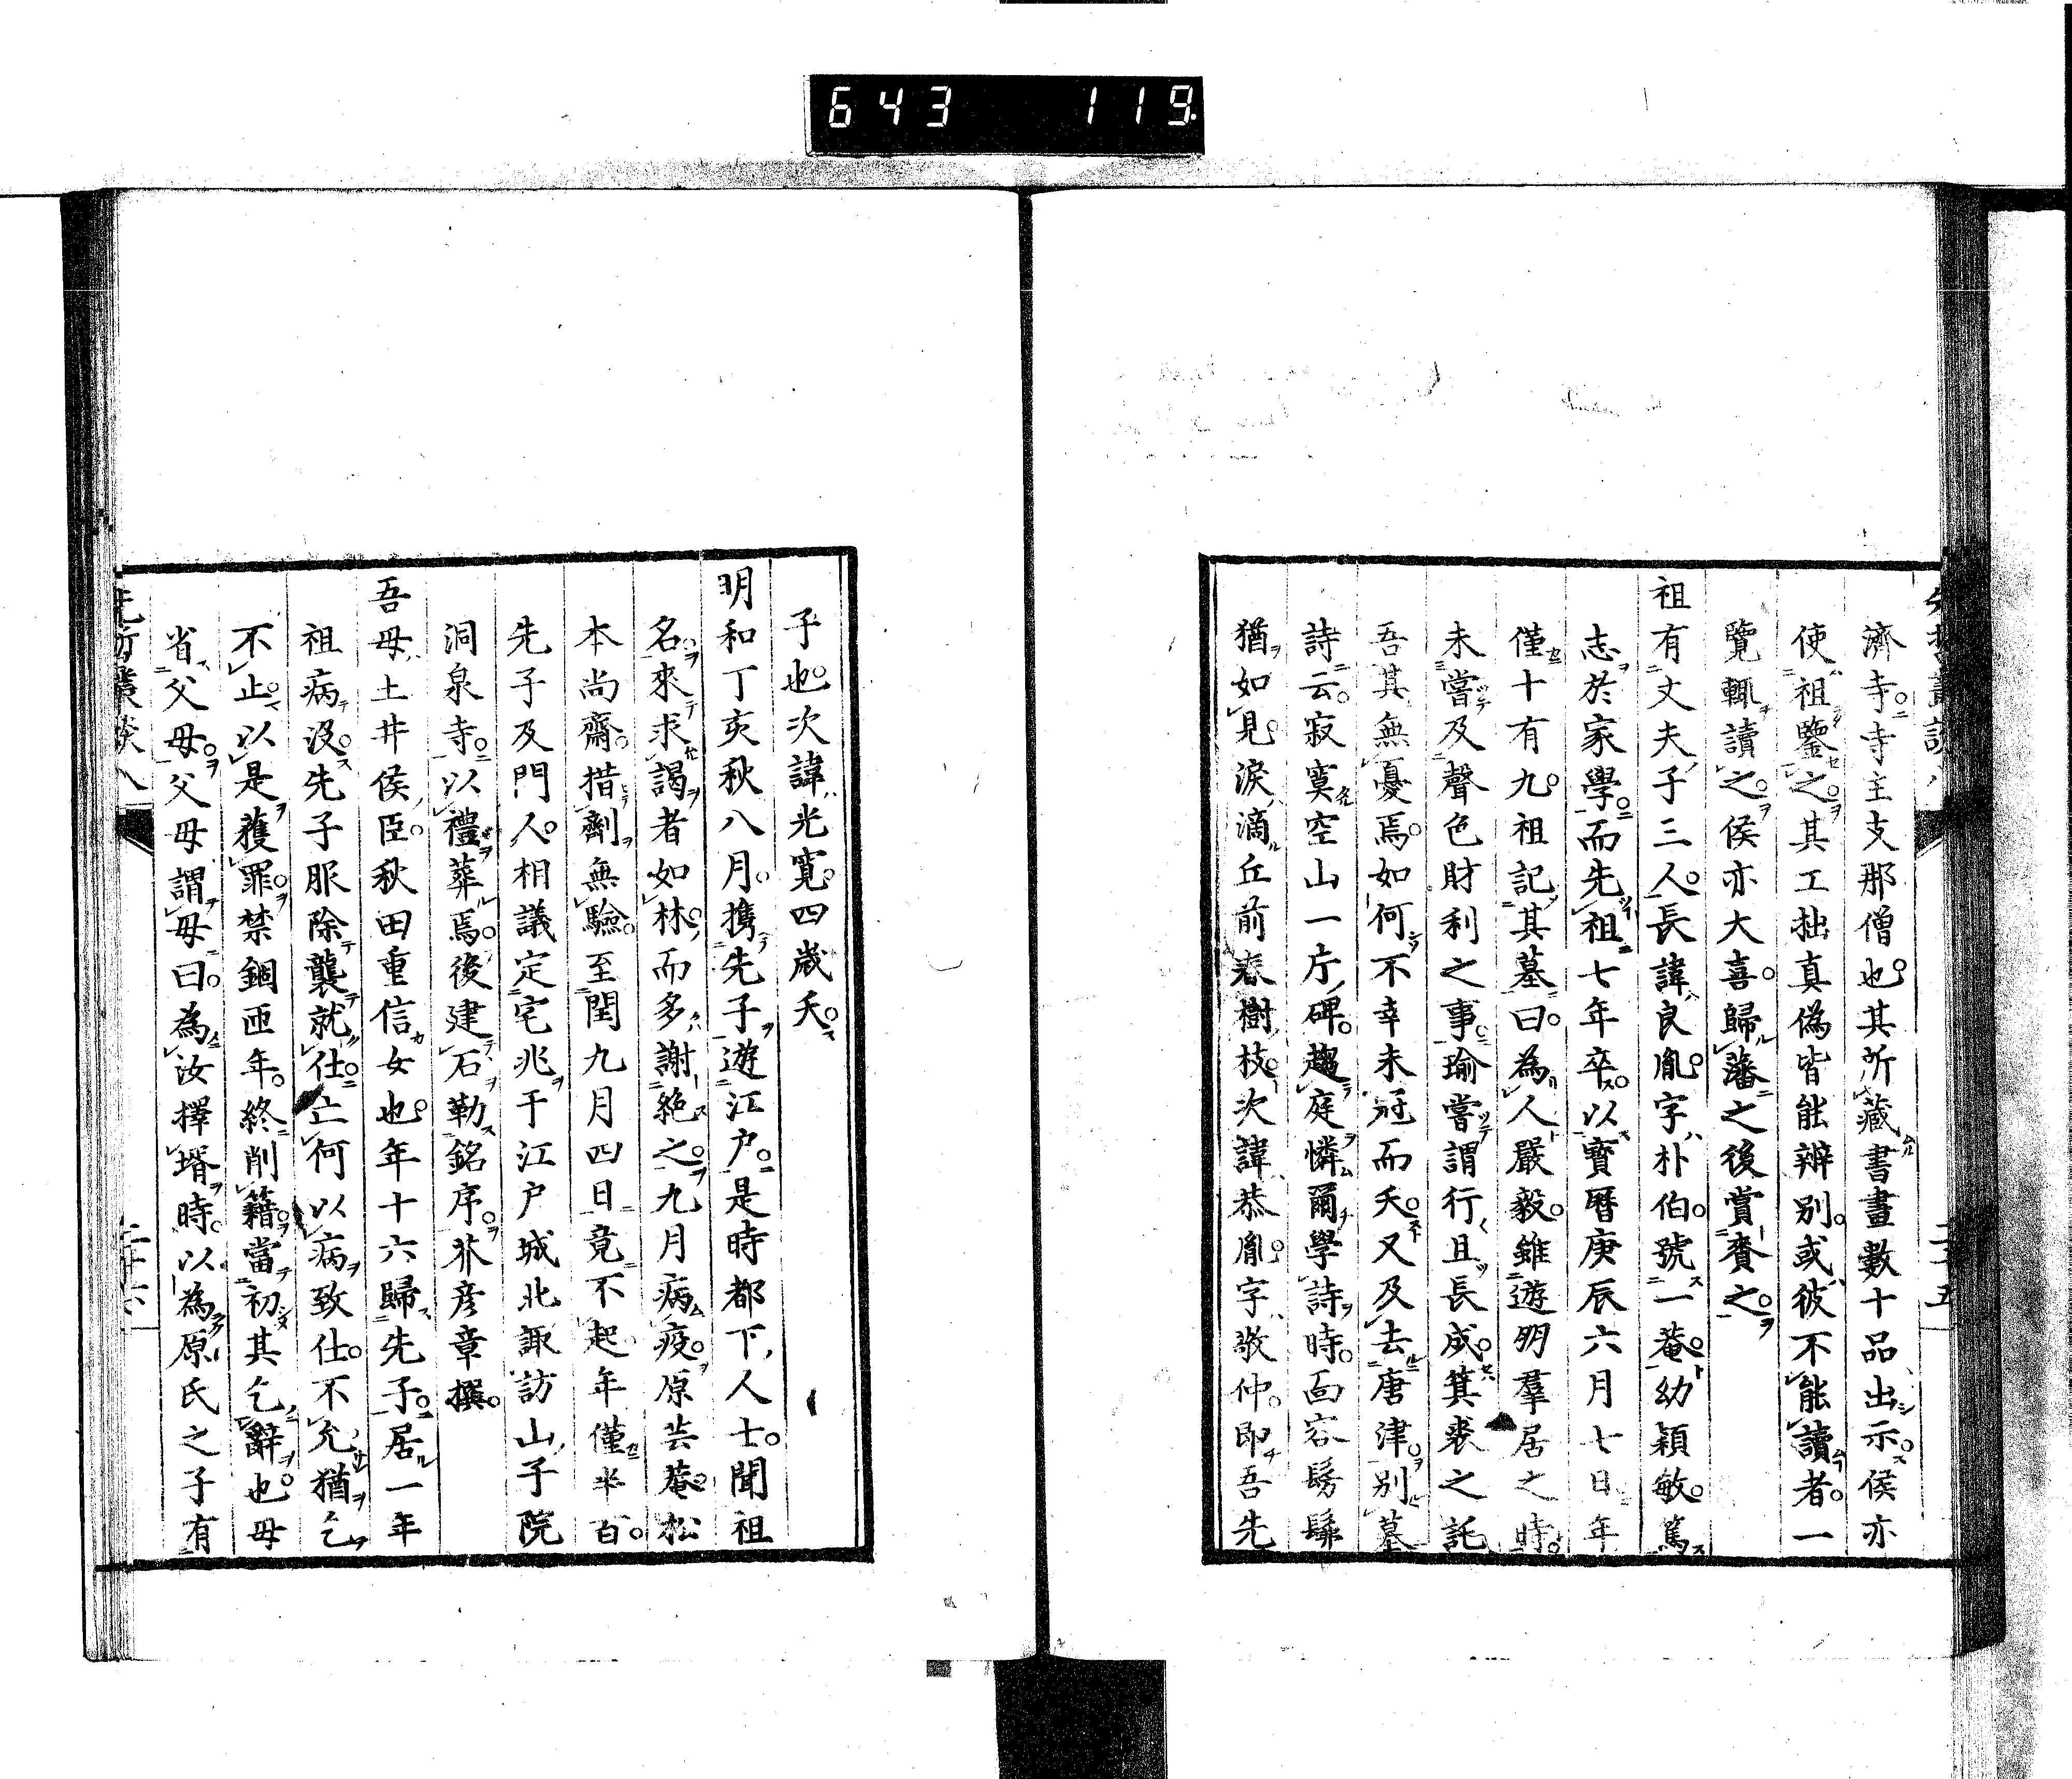 643 119
濟寺寺主支那僧也其所藏書畫數十品出示侯亦
使祖鑒之其工拙真僞皆能辨別或彼不能讀者一
覽輙讀之侯亦大喜歸藩之後賞賚之
祖有丈夫子三人長諱良胤字朴伯號一菴幼穎敏篤
志於家學而先祖七年卒以寶曆庚辰六月七日年
僅十有九祖記其墓曰為人嚴毅雖遊朋羣居之時
未嘗及聲色財利之事瑜嘗謂行且長成箕裘之託
吾其無憂焉如何不幸未冠而夭又及去唐津別墓
詩云寂寞空山一片碑趨庭憐爾學詩時面容髣髴
猶如見淚滴丘前春樹枝次諱恭胤字敬仲即吾先
子也次諱光寛四歳夭
明和丁亥秋八月携先子遊江户是時都下人士聞祖
名來求謁者如林而多謝絶之九月病疫原芸菴松
本尚齋措劑無驗至閏九月四日竟不起年僅半百
先子及門人相議定宅兆于江户城北諏訪山子院
洞泉寺以禮葬焉後建石勒銘序芥彦章撰
吾母土井侯臣秋田重信女也年十六歸先子居一年
祖病沒先子服除襲就仕亡何以病致仕不允猶乞
不止以是蕕罪禁錮匝年終削籍當初其乞辭也母
省父母父母謂母曰為汝擇壻時以為原氏之子有